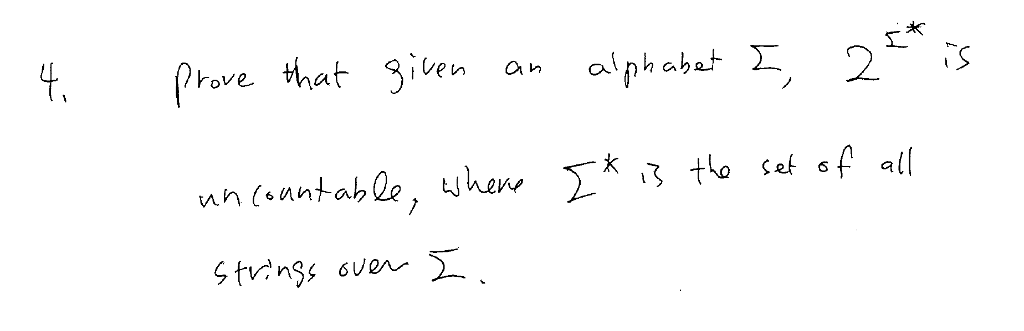 4. Prove that given an alphabet Σ, 2^Σ* is
uncountable, where Σ* is the set of all
strings over Σ.